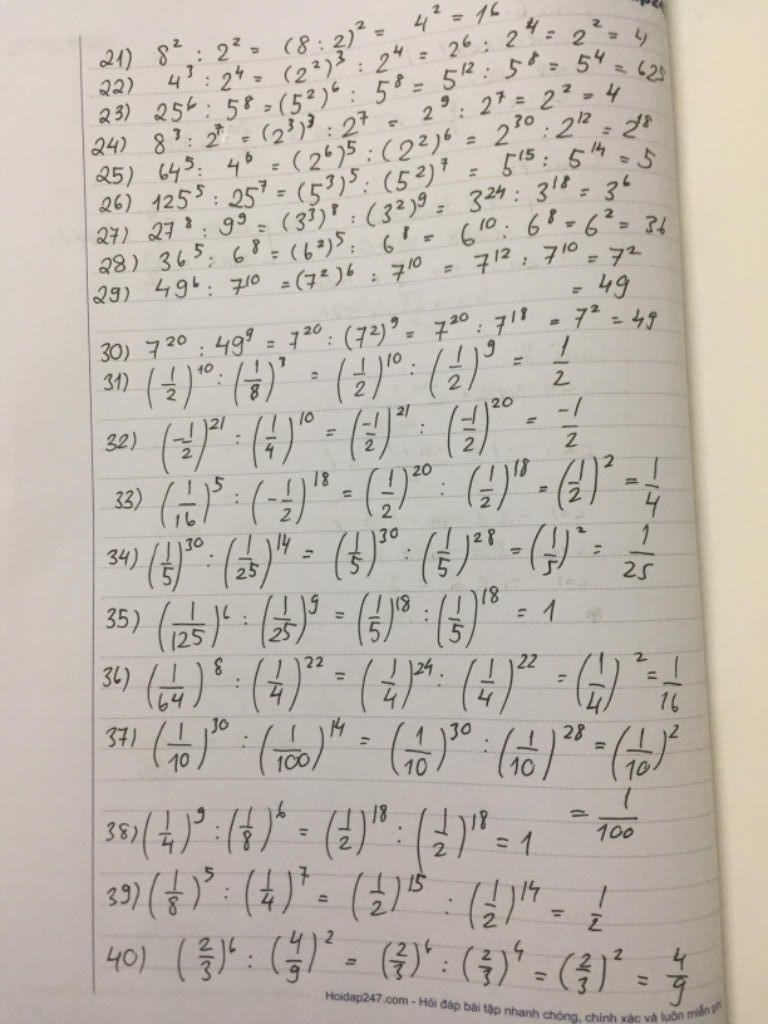 21) 8² : 2² = (8 : 2)² = 4² = 16
22) 4³ : 2⁴ = (2²)³ : 2⁴ = 2⁶ : 2⁴ = 2² = 4
23) 25⁶ : 5⁸ = (5²)⁶ : 5⁸ = 5¹² : 5⁸ = 5⁴ = 625
24) 8³ : 2⁷ = (2³)³ : 2⁷ = 2⁹ : 2⁷ = 2² = 4
25) 64⁵ : 4⁶ = (2⁶)⁵ : (2²)⁶ = 2³⁰ : 2¹² = 2¹⁸
26) 125⁵ : 25⁷ = (5³)⁵ : (5²)⁷ = 5¹⁵ : 5¹⁴ = 5
27) 27⁸ : 9⁹ = (3³)⁸ : (3²)⁹ = 3²⁴ : 3¹⁸ = 3⁶
28) 36⁵ : 6⁸ = (6²)⁵ : 6⁸ = 6¹⁰ : 6⁸ = 6² = 36
29) 49⁶ : 7¹⁰ = (7²)⁶ : 7¹⁰ = 7¹² : 7¹⁰ = 7²
= 49
30) 7²⁰ : 49⁹ = 7²⁰ : (7²)⁹ = 7²⁰ : 7¹⁸ = 7² = 49
31) (1/2)¹⁰ : (1/8)³ = (1/2)¹⁰ : (1/2)⁹ = 1/2
32) (-1/2)²¹ : (1/4)¹⁰ = (-1/2)²¹ : (-1/2)²⁰ = -1/2
33) (1/16)⁵ : (-1/2)¹⁸ = (1/2)²⁰ : (1/2)¹⁸ = (1/2)² = 1/4
34) (1/5)³⁰ : (1/25)¹⁴ = (1/5)³⁰ : (1/5)²⁸ = (1/5)² = 1/25
35) (1/125)⁶ : (1/25)⁹ = (1/5)¹⁸ : (1/5)¹⁸ = 1
36) (1/64)⁸ : (1/4)²² = (1/4)²⁴ : (1/4)²² = (1/4)² = 1/16
37) (1/10)³⁰ : (1/100)¹⁴ = (1/10)³⁰ : (1/10)²⁸ = (1/10)²
= 1/100
38) (1/4)⁹ : (1/8)⁶ = (1/2)¹⁸ : (1/2)¹⁸ = 1
39) (1/8)⁵ : (1/4)⁷ = (1/2)¹⁵ : (1/2)¹⁴ = 1/2
40) (2/3)⁶ : (4/9)² = (2/3)⁶ : (2/3)⁴ = (2/3)² = 4/9
Hoidap247.com - Hỏi đáp bài tập nhanh chóng, chính xác và luôn miễn